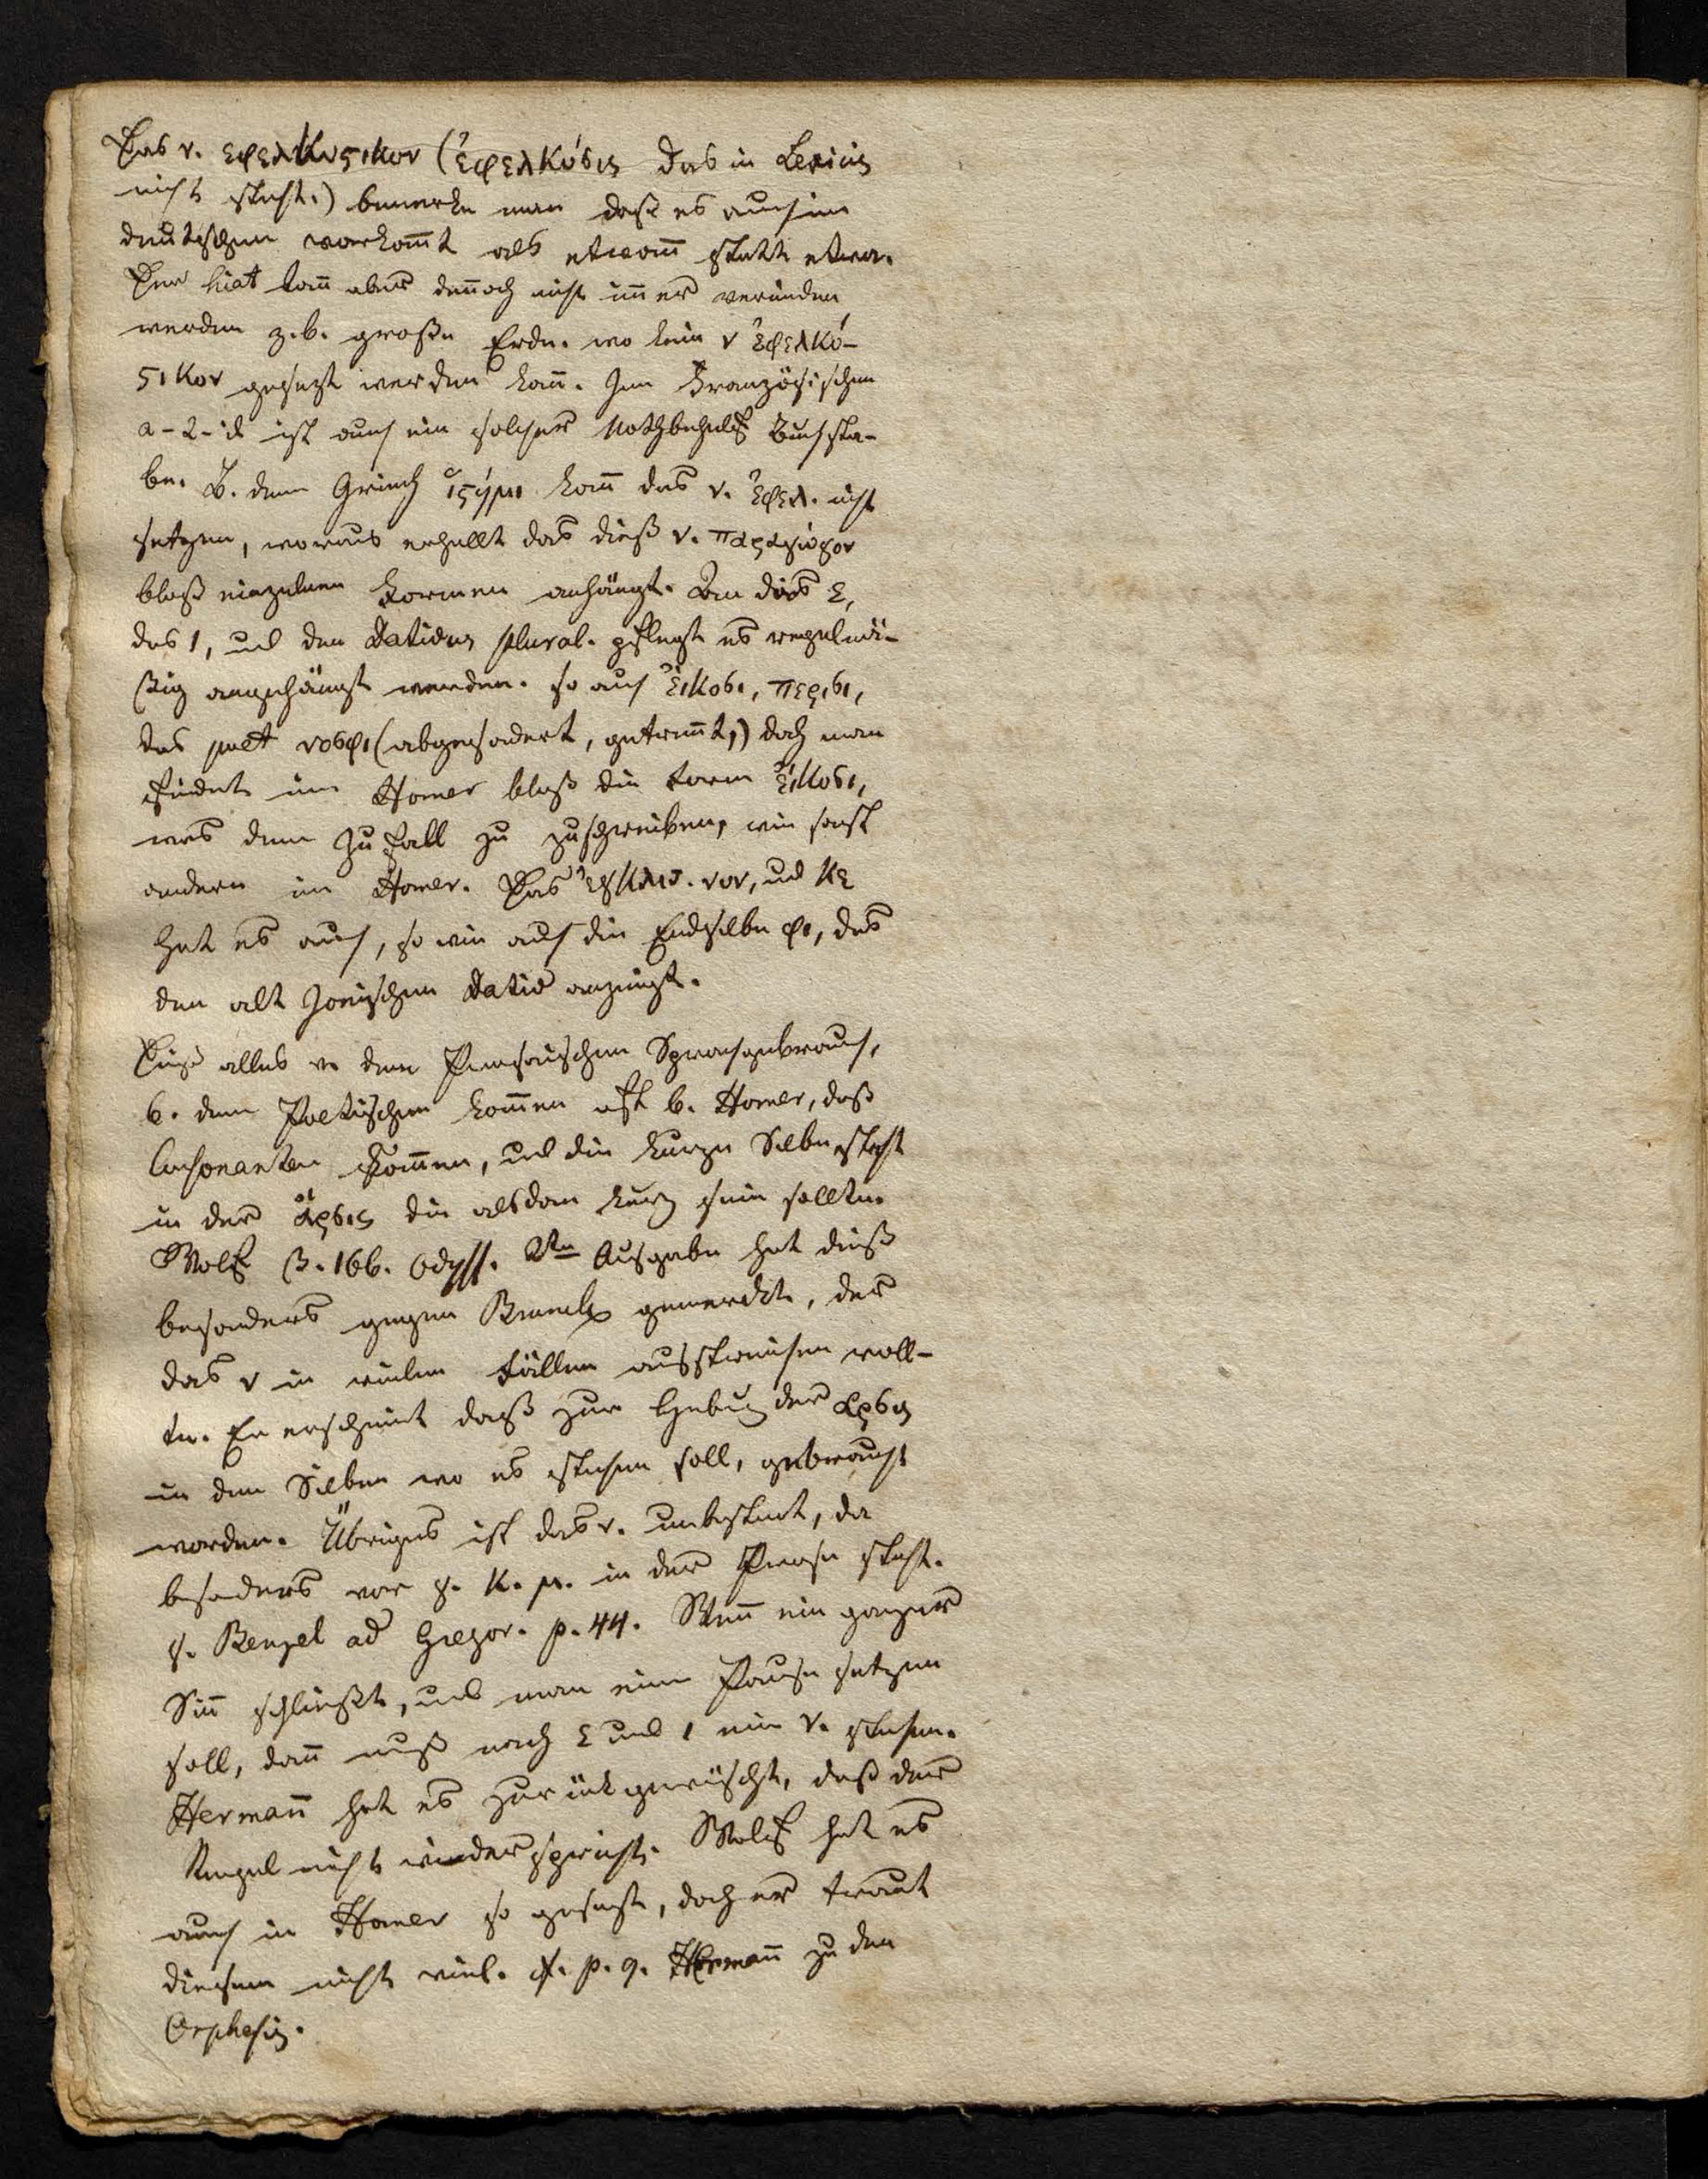 Das ν. εφελκυϛικον (ἐφελκύσις das in Lexicis
nicht steht.) bemerke man daß es auch im
deutschen vorkom̅t als etwan̅ statt etwa.
Der hiat kan̅ aber den̅och nicht im̅er vermieden
werden z.b. große Erde. wo kein ν ἐφελκύ-
ϛικον gesezt werden kan̅. Im Französischen
a-t-il ist auch ein solcher Nothbehelf Buchsta-
be. B. dem Griech ἵϛημι kan̅ das ν. ἐφελ. nicht
setzen, woraus erhellt das dieß ν. παραγωγον
bloß einzelnen Formen anhängt. An das ε,
das ι, und den Dativus plural. pflegt es regelmä-
ßig angehängt werden. so auch εἴκοσι, περισι,
das poet νοσφι (abgesondert, getren̅t,) doch man
findet im Homer bloß die Form εἴκοσι,
was dem Zufall zu zuschreiben, wie sonst
andern im Homer. Das ἐγκλιτ. νυν, und κε
hat es auch, so wie auch die Endsilbe φι, das
den alt Jonischen Dativ anzeigt.
Dieß alles v. dem Prosaischen Sprachgebrauch,
b. dem Poetischen kom̅en oft b. Homer, daß
Consonanten kom̅en, und die kurze Silbe steht
in der ἄρσις die alsdan kurz sein sollte.
Wolf β. 166. Odyss. 2te Ausgabe hat dieß
besonders gegen Brunck gemerckt, der
das ν in vielen Fällen ausstreichen woll-
te. Er erscheint daß zur Hebung der αρσις
in den Silben wo es stehen soll, gebraucht
worden. Übrigens ist das ν. unbestim̅t, da
besonders vor γ. κ. μ. in der Prosa steht.
γ. Bengel ad Gregor. p. 44. Wen̅ ein ganzer
Sin̅ schließt, und man eine Pause setzen
soll, dan̅ muß nach ε und ι ein ν. stehen.
Herman̅ hat es zurückgewünscht, daß der
Regel nicht widerspricht. Wolf hat es
auch in Homer so gesetzt, doch er traut
diesem nicht viel. cf. p. 9. Herman̅ zu den
Orphesis.